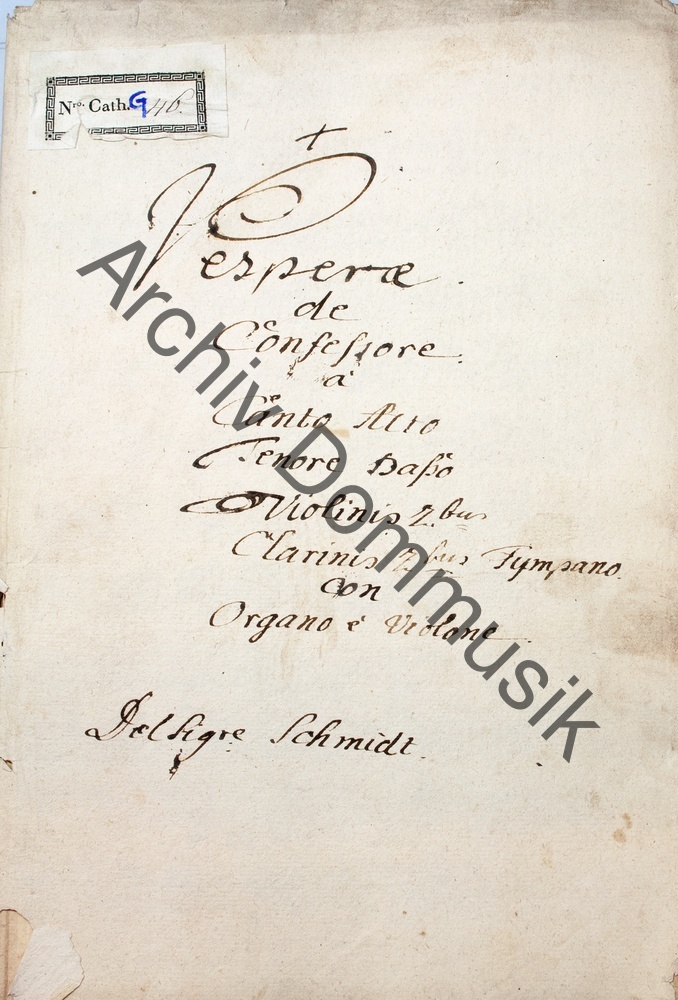 Nro. Cath. G 46.
Vesperæ.
de
Confessore.
à
Canto Alto
Tenore Basso
Violinis 2.bus
Clarinis 2.bus Tympano.
con
Organo è Violone
Del Sigre Schmidt.
Archiv Dommusik